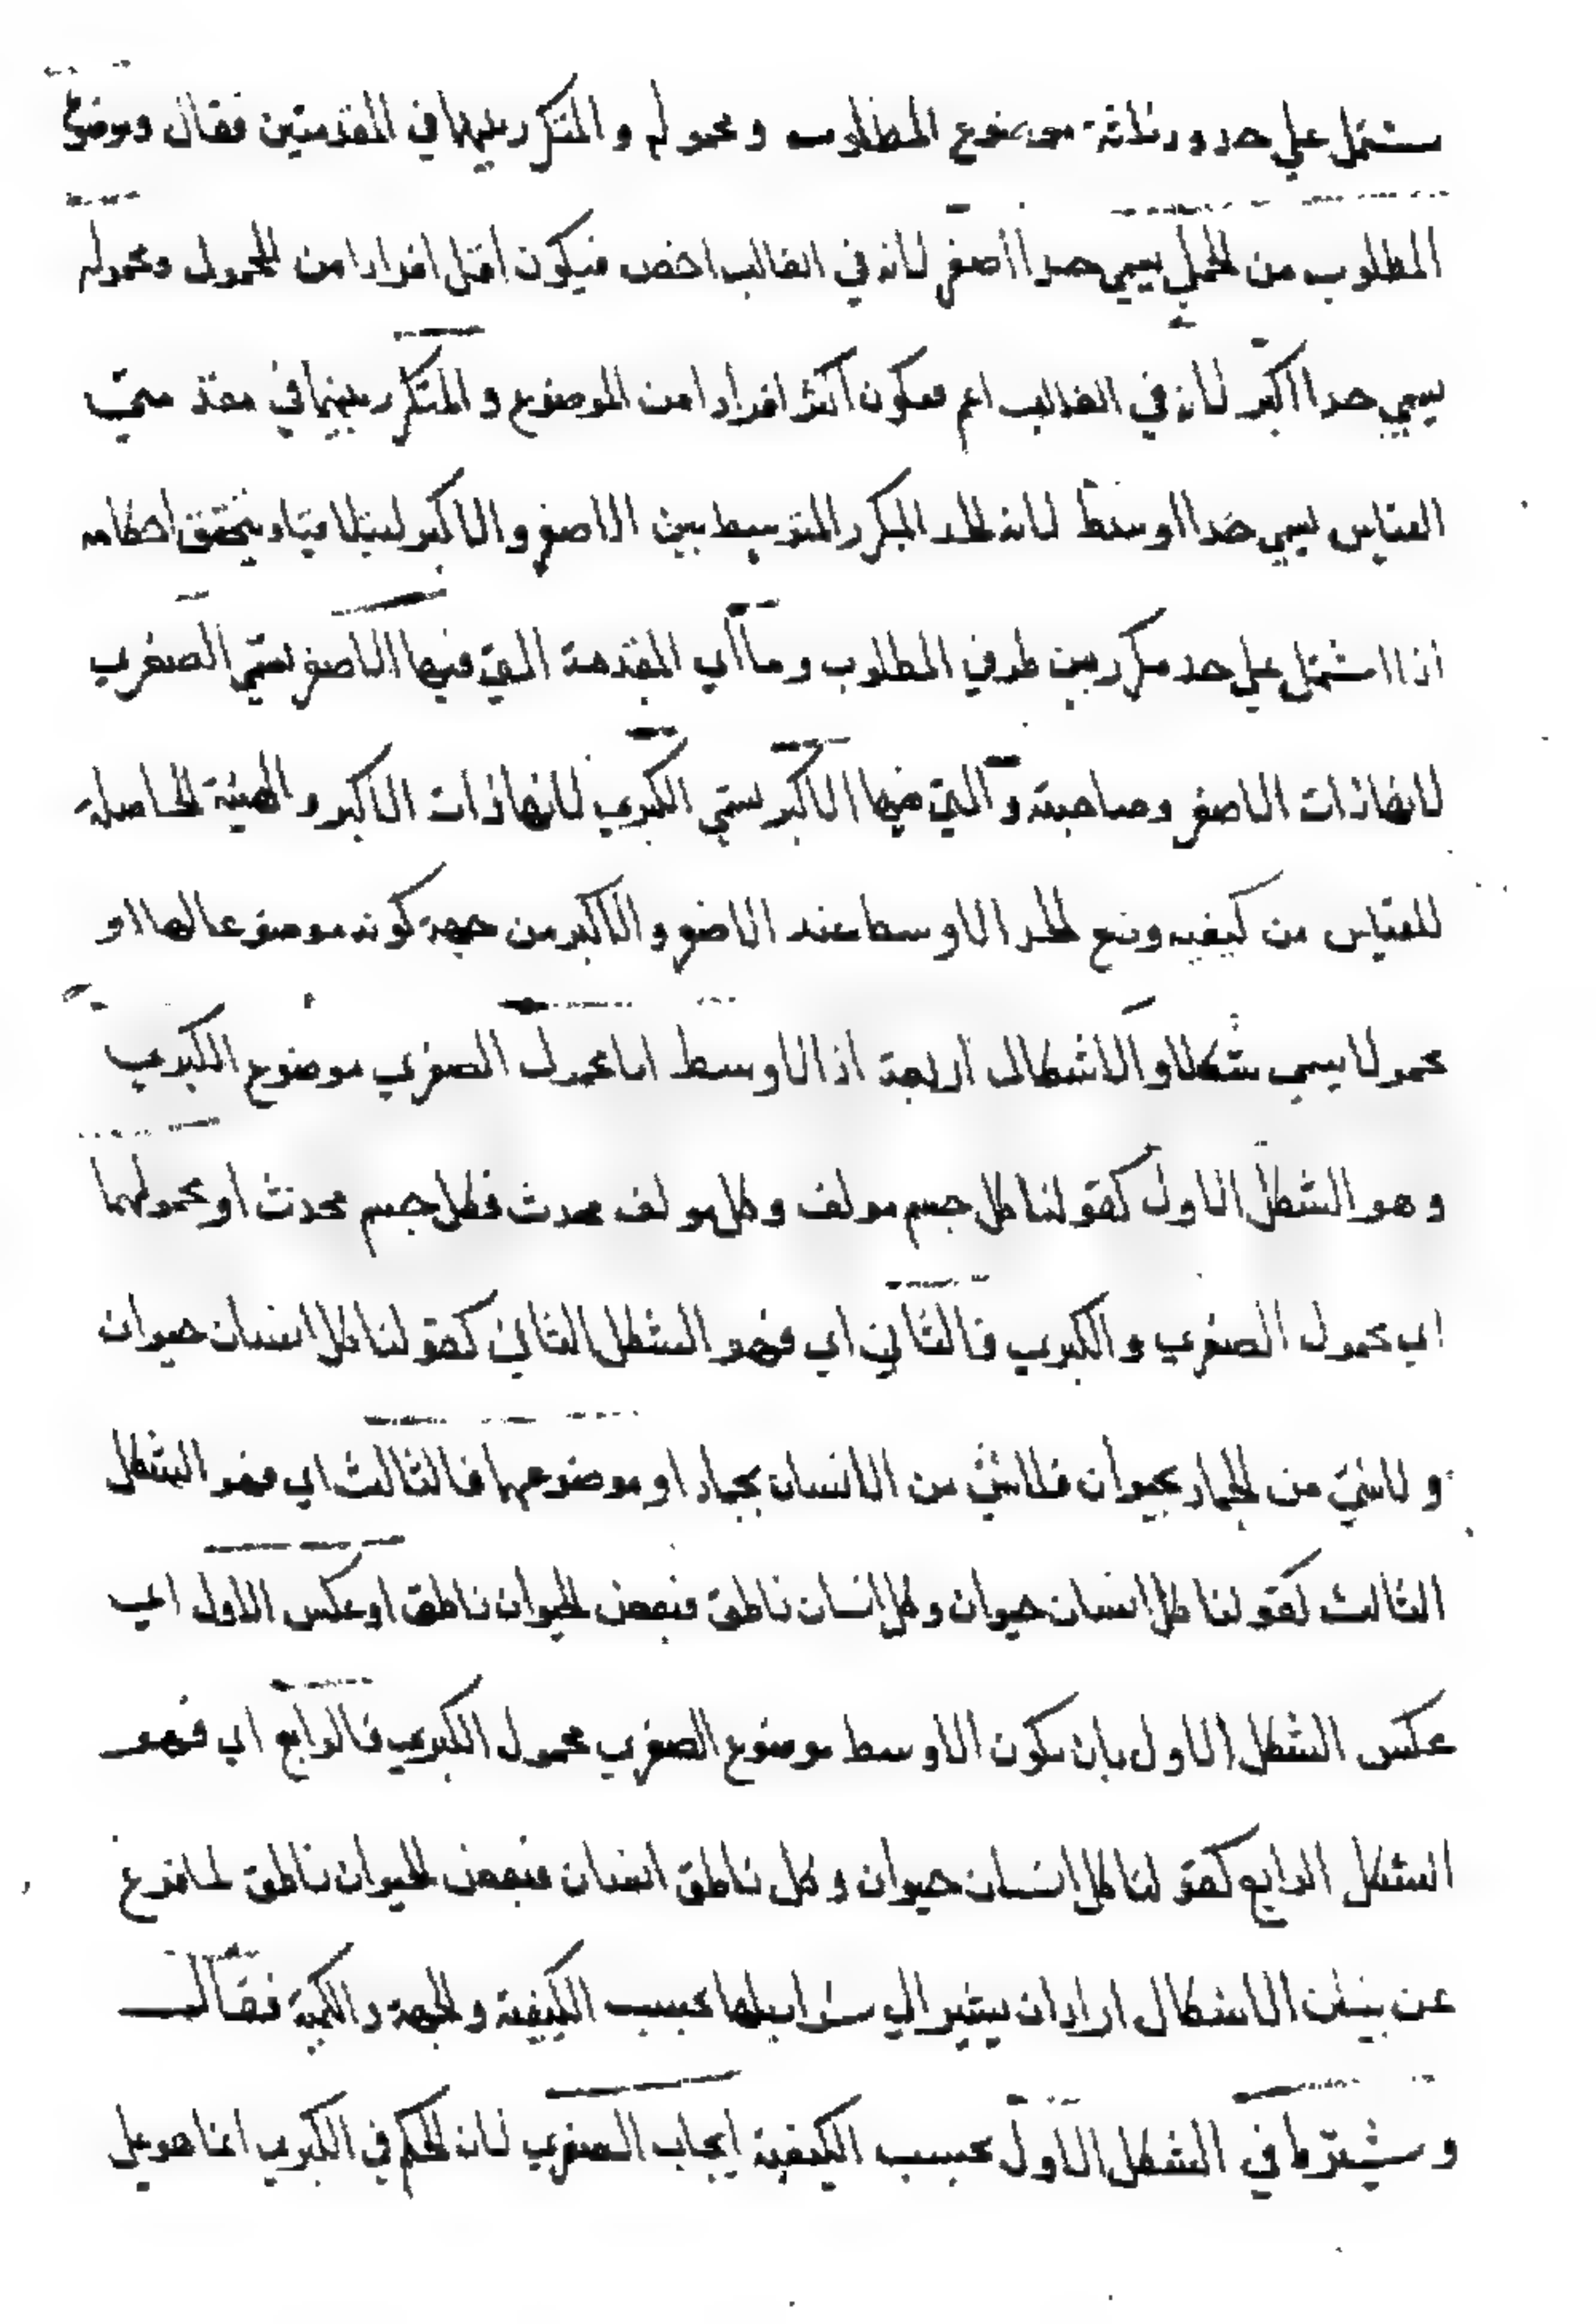 يشتمل علي حدود ثلاثة موضوع المطلوب ومحموله والمتكرر بينهما في المقدمتين فقال وموضوع
المطلوب من الحملي يسمي حدا أصغر لانه في الغالب اخص فيكون اقل افرادا من المحمول ومحموله
يسمي حدا اكبر لانه في الغالب اعم فيكون اكثر افرادا من الموضوع والمتكرر بينهما في مقدمتي
القياس يسمي حدا اوسط لانه الحد المكرر المتوسط بين الاصغر والاكبر ليتلاقيا ويتحقق احكامه
اذا اشتمل علي حد مكرر بين طرفي المطلوب وما اي المقدمة التي فيها الاصغر تسمي الصغري
لانها ذات الاصغر وصاحبته والتي فيها الاكبر تسمي الكبري لانها ذات الاكبر والهيئة الحاصلة
للقياس من كيفيه وضع الحد الاوسط عند الاصغر والاكبر من جهة كونه موضوعا لهما او
محمولا يسمي شكلا والاشكال اربعة اذ الاوسط اما محمول الصغري موضوع الكبري
وهو الشكل الاول كقولنا كل جسم مولف وكل مولف محدث فكل جسم محدث او محمولهما
اي محمول الصغري والكبري فالثاني اي فهو الشكل الثاني كقولنا كل انسان حيوان
ولا شي من الجماد بحيوان فلا شي من الانسان بجماد او موضوعهما فالثالث اي فهو الشكل
الثالث كقولنا كل انسان حيوان وكل انسان ناطق فبعض الحيوان ناطق او عكس الاول اي
عكس الشكل الاول بان يكون الاوسط موضوع الصغري محمول الكبري فالرابع اي فهو
الشكل الرابع كقولنا كل انسان حيوان وكل ناطق انسان فبعض الحيوان ناطق لما فرغ
عن بيان الاشكال اراد ان يشير الي شرايطها بحسب الكيفية والجهة والكمية فقال
ويشترط في الشكل الاول بحسب الكيفية ايجاب الصغري لان الحكم في الكبري انما هو علي